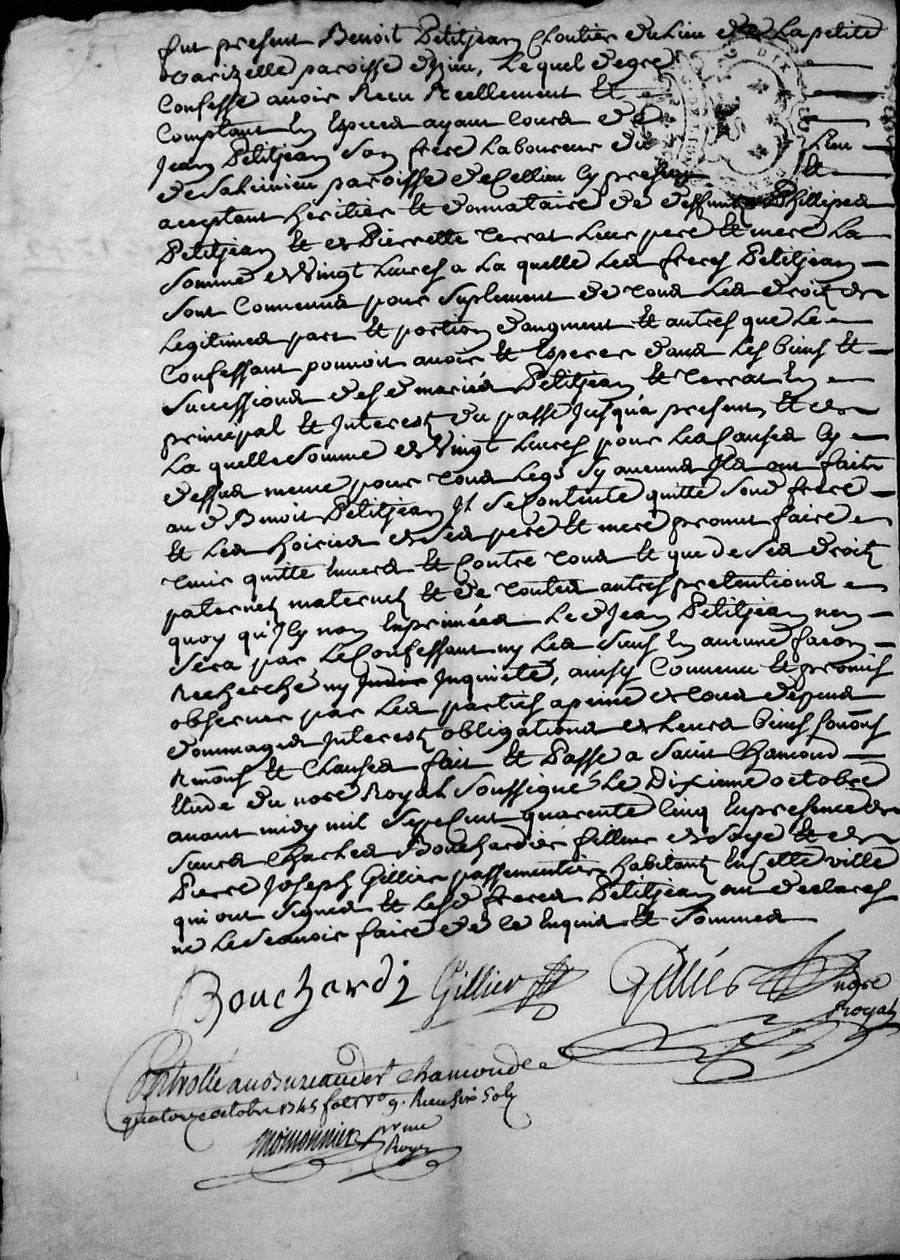 fut present Benoit Petitjean Cloutier du Lieu de La petite
Varizelle paroisse d'Izieu, Lequel de gre
Confesse avoir Recu Reellement et
Comptant En Especes ayant Cours de
Jean Petitjean Son frere Laboureur du Lieu
de Salcinieu paroisse de Cellieu Cy present et
aceptant heritier et donnataire de deffunts Phillipes
Petitjean et de Pierrette Terrat Leur pere et mere La
Somme de Vingt Livres a La quelle Les freres Petitjean
Sont Convenus pour Suplement de tous Les droits de
Legitimes part et portion d'augment et autres que Le
Confessant pouvoit avoir et Esperer dans Les biens et
Successions des d mariés Petitjean et Terrat En
principal et Interests du passé Jusqu'a present, et de
La quelle Somme de Vingt Livres pour Les Causes Cy
dessus meme pour tous Legs Sy aucuns Ils ont faits
au d Benoit Petitjean Il Se Contente quitte Sond frere
et Les hoiries de Ses pere et mere promet faire
tenir quitte Envers et Contre tous et que de Ses droits
paternels maternels et de toutes autres pretentions
quoy qu'Icy non Exprimées Le d Jean Petitjean nen
Sera par Le Confessant ny Les Siens En aucune facon
Recherché ny Inquieté, ainsy Convenu et promis
observer par Les parties a peine de tous depens
dommages Interests obligations de Leurs biens
et Clauses fait et Passé a Saint Chamond
Etude du nore Royal Soussigné Le Dixieme octobre
avant midy mil Sept Cent quarente Cinq En presence de
Sieurs Charles Bouchardier filleur de Soye et de
Pierre Joseph Gillier passementier habitants En Cette ville
qui ont Signés et Les d freres Petitjean ont declarés
ne Le Scavoir faire de Ce Enquis et Sommés
Bouchardi Gillier Gillier
nore
Royal
Controllé au Bureau de St Chamond Le
quatorze octobre 1745 fol
Recu Six Sols